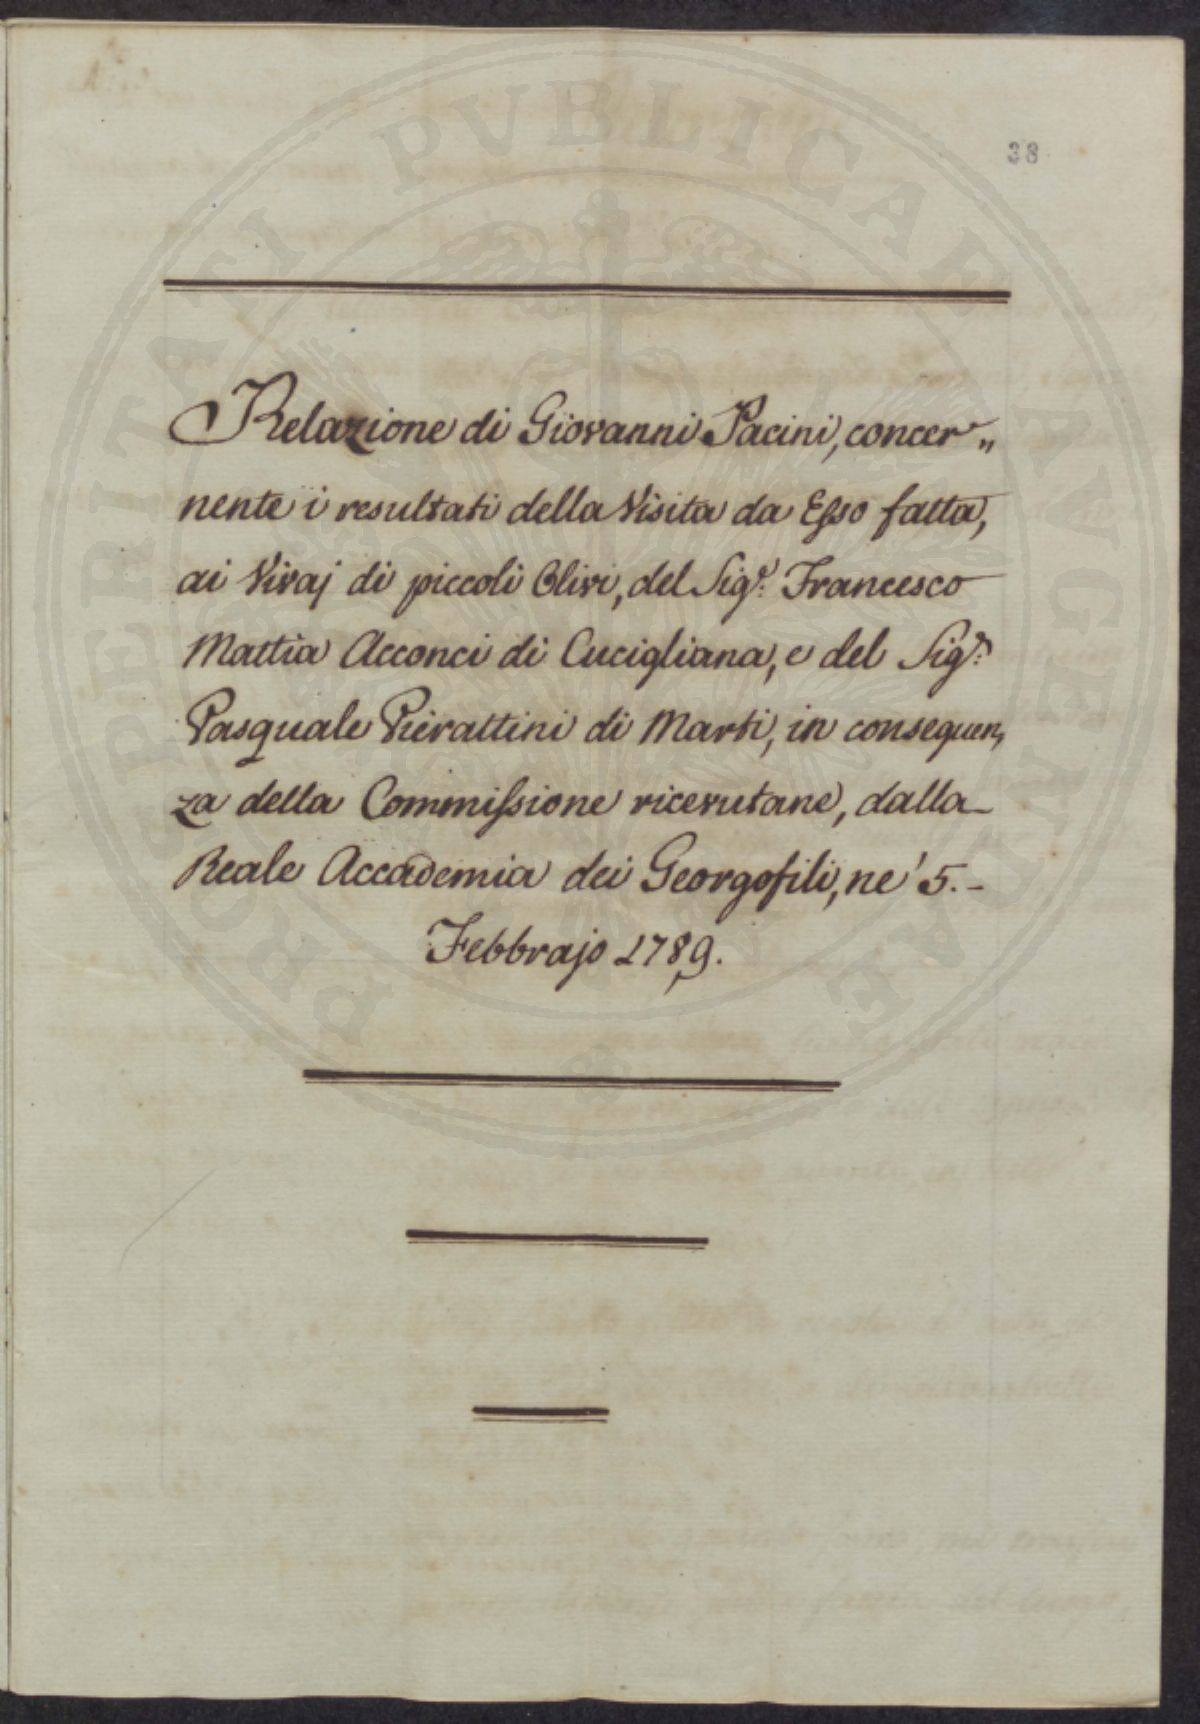 38
Relazione di Giovanni Pacini, concer„
nente i resultati della Visita da Esso fatta,
ai Vivaj di piccoli Olivi, del Sig.r Francesco
Mattia Acconci di Cucigliana, e del Sig.r
Pasquale Pierattini di Marti, in conseguen„
za della Commissione ricevutane, dalla
Reale Accademia dei Georgofili, ne' 5.
Febbrajo 1789.
PROSPERITATI PVBLICAE AVGENDAE